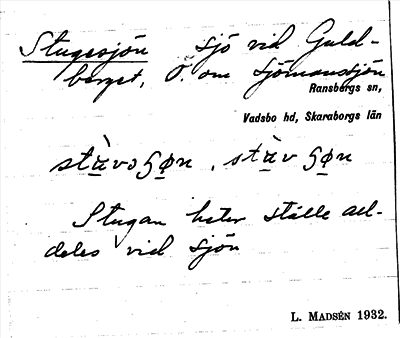 Stugesjön sjö vid Guld-
berget, Ö. om Sjömansjön
Ransbergs sn,
Vadsbo hd, Skaraborgs län
Stugan heter ställe all-
deles vid sjön
L. MADSÉN 1932.